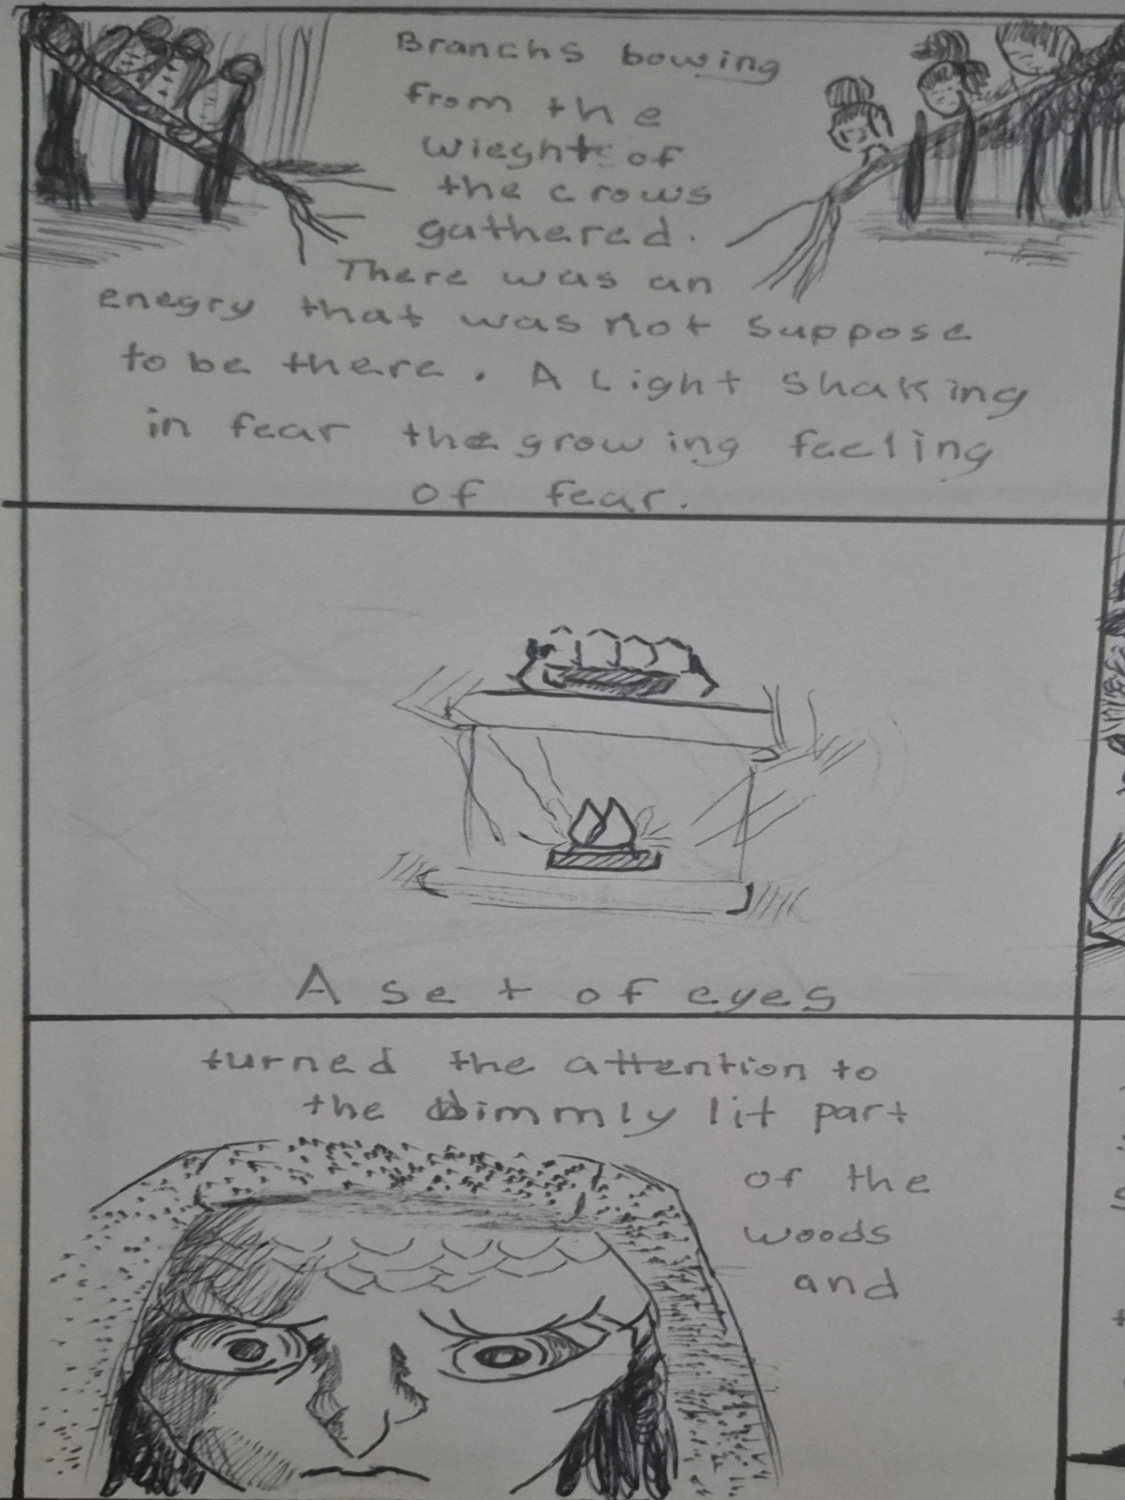 Branchs bowing
from the
wieghts of
the crows
gathered.
There was an
enegry that was not suppose
to be there. A Light shaking
in fear the growing feeling
of fear.
A set of eyes
turned the attention to
the dimmly lit part
of the
woods
and